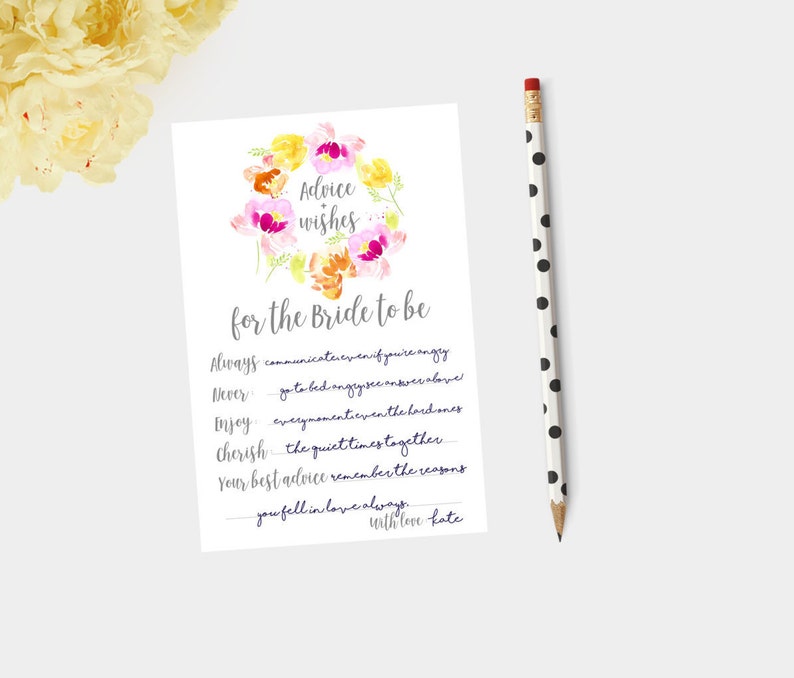 Advice
+
wishes
for the Bride to be
Always: communicate, even if you're angry
Never: go to bed angry, see answer above!
Enjoy: every moment, even the hard ones
Cherish: the quiet times together
Your best advice remember the reasons
you fell in love always.
With love kate